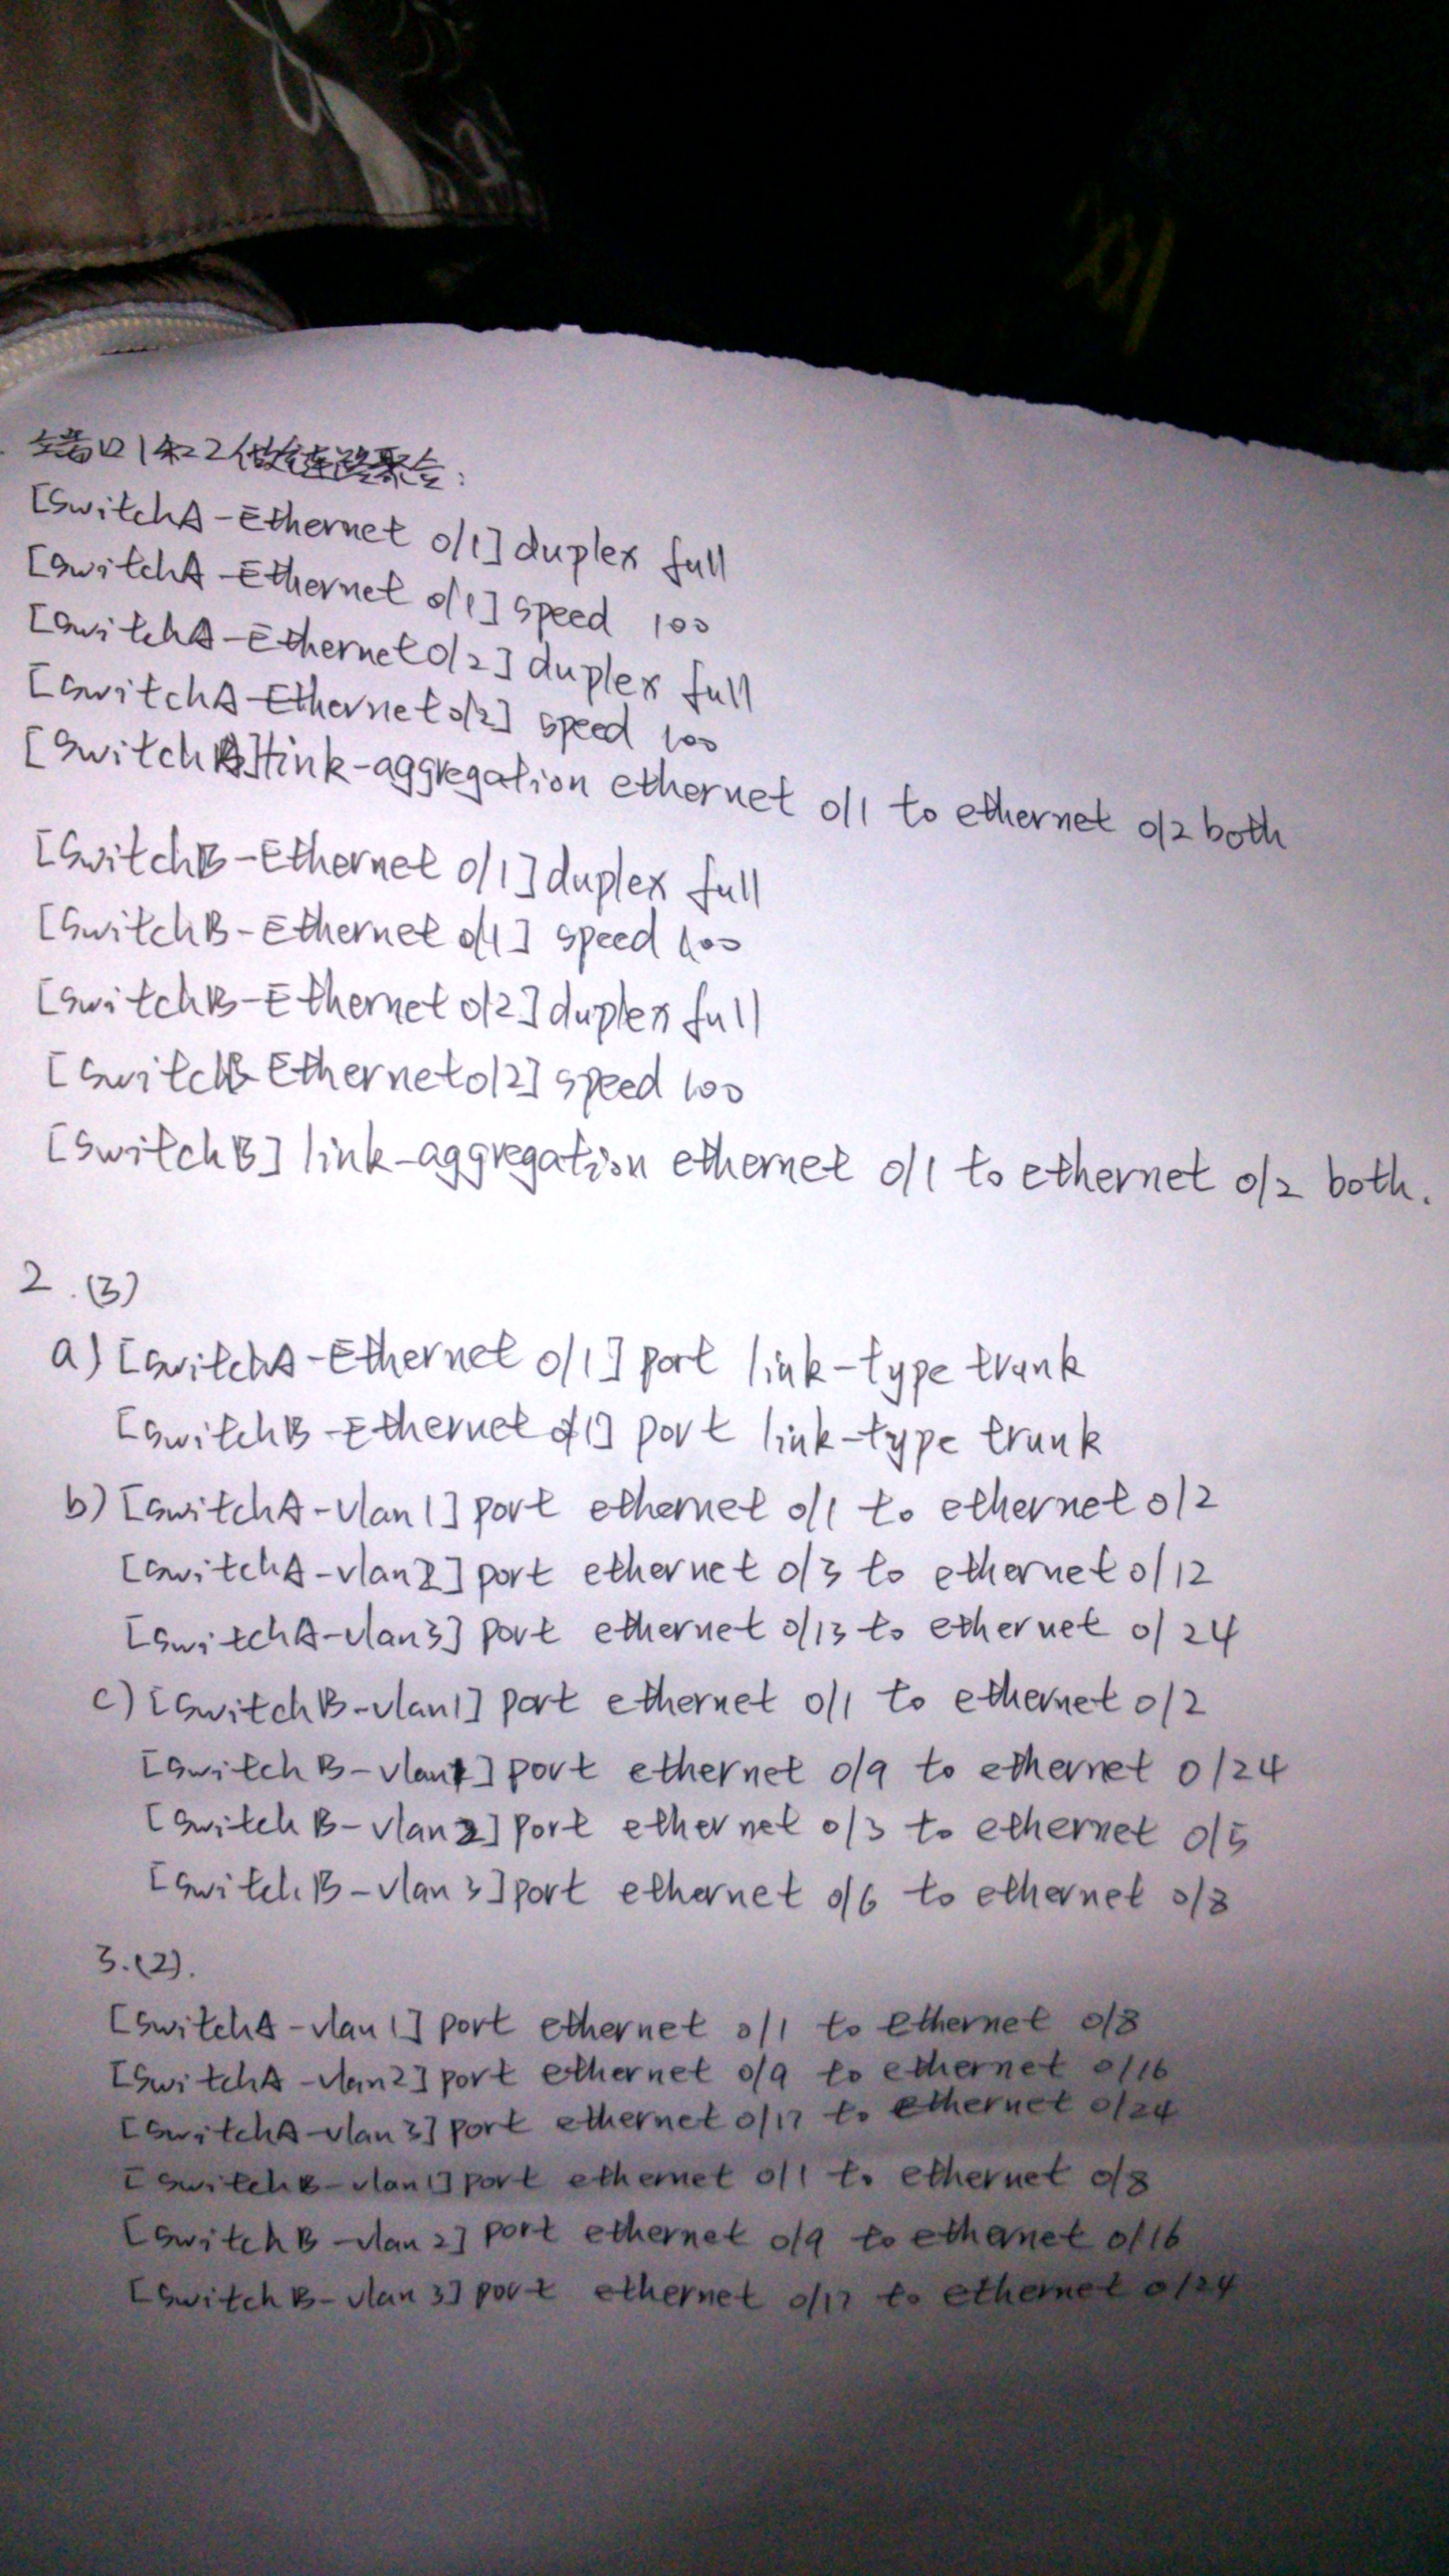 端口1和2做链路聚合:
[SwitchA-Ethernet 0/1] duplex full
[SwitchA-Ethernet 0/1] speed 100
[SwitchA-Ethernet 0/2] duplex full
[SwitchA-Ethernet 0/2] speed 100
[SwitchA] link-aggregation ethernet 0/1 to ethernet 0/2 both
[SwitchB-Ethernet 0/1] duplex full
[SwitchB-Ethernet 0/1] speed 100
[SwitchB-Ethernet 0/2] duplex full
[SwitchB-Ethernet 0/2] speed 100
[SwitchB] link-aggregation ethernet 0/1 to ethernet 0/2 both.
2.(3)
a) [SwitchA-Ethernet 0/1] port link-type trunk
[SwitchB-Ethernet 0/1] port link-type trunk
b) [SwitchA-vlan1] port ethernet 0/1 to ethernet 0/2
[SwitchA-vlan2] port ethernet 0/3 to ethernet 0/12
[SwitchA-vlan3] port ethernet 0/13 to ethernet 0/24
c) [SwitchB-vlan1] port ethernet 0/1 to ethernet 0/2
[SwitchB-vlan1] port ethernet 0/9 to ethernet 0/24
[SwitchB-vlan2] port ethernet 0/3 to ethernet 0/5
[SwitchB-vlan3] port ethernet 0/6 to ethernet 0/8
3.(2).
[SwitchA-vlan1] port ethernet 0/1 to ethernet 0/8
[SwitchA-vlan2] port ethernet 0/9 to ethernet 0/16
[SwitchA-vlan3] port ethernet 0/17 to ethernet 0/24
[SwitchB-vlan1] port ethernet 0/1 to ethernet 0/8
[SwitchB-vlan2] port ethernet 0/9 to ethernet 0/16
[SwitchB-vlan3] port ethernet 0/17 to ethernet 0/24